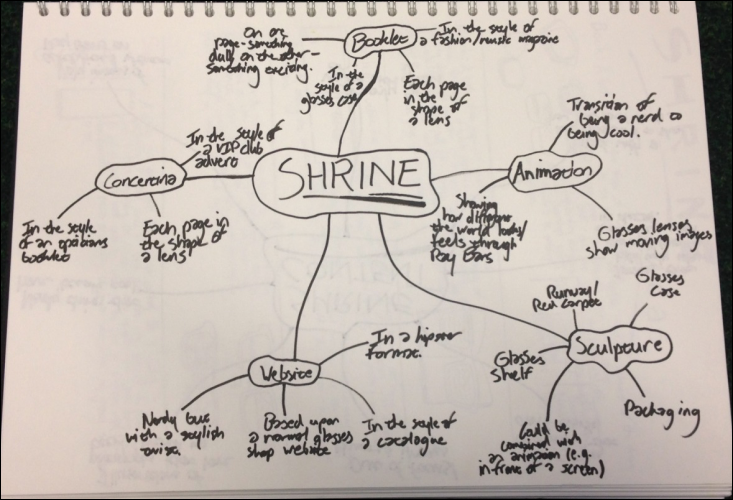 SHRINE
Booklet
On one
page - something
dull, on the other -
something exciting.
In the
style of a
glasses case
In the style of
a fashion/music magazine
Each page
in the
shape of
a lens
Animation
Transition of
being a nerd to
being cool.
Showing
how different
the world looks/
feels through
Ray Bans
Glasses lenses
show moving images
Sculpture
Runway/
Red carpet
Glasses
Case
Glasses
shelf
Packaging
Could be
combined with
an animation (e.g.
in front of a screen)
Website
In a hipster
format.
Nerdy but
with a stylish
twist.
Based upon
a normal glasses
shop website
In the style of
a catalogue
Concertina
In the style of
a VIP club
advert
In the style
of an opticians
booklet
Each page in
the shape of
a lens